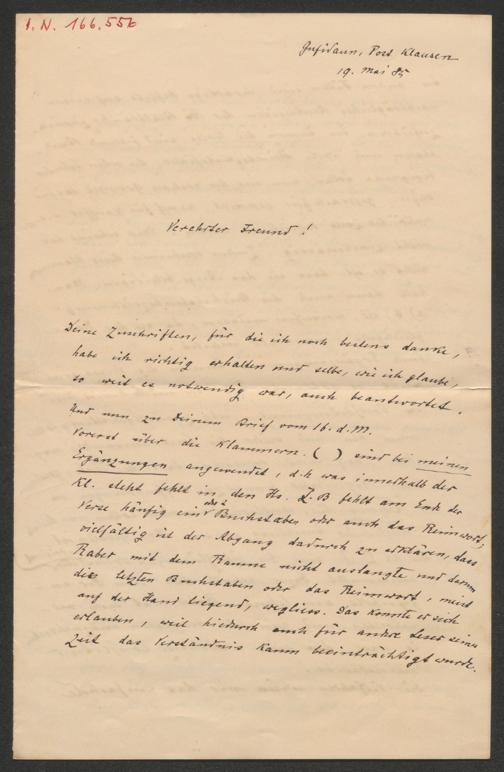 I.N. 166.556
Gufidaun, Post Klausen
19. Mai 85
Verehrter Freund!
Deine Zuschriften, für die ich noch bestens danke,
habe ich richtig erhalten und selbe, wie ich glaube,
so weit es notwendig war, auch beantwortet.
Und nun zu Deinem Brief vom 16. d. M.
Vorerst über die Klammern. ( ) sind bei meinen
Ergänzungen angewendet, d.h. was innerhalb der
Kl. steht fehlt in den Hs. Z.B fehlt am Ende der
Verse häufig ein Buchstaben oder auch das Reimwort,
vielfältig ist der Abgang dadurch zu erklären, dass
Raber mit dem Raume nicht auslangte und darum
die letzten Buchstaben oder das Reimwort, meist
auf der Hand liegend, wegliess. Das konnte er sich
erlauben, weil hiedurch auch für andre Leser seiner
Zeit das Verständnis kaum beeinträchtigt wurde.